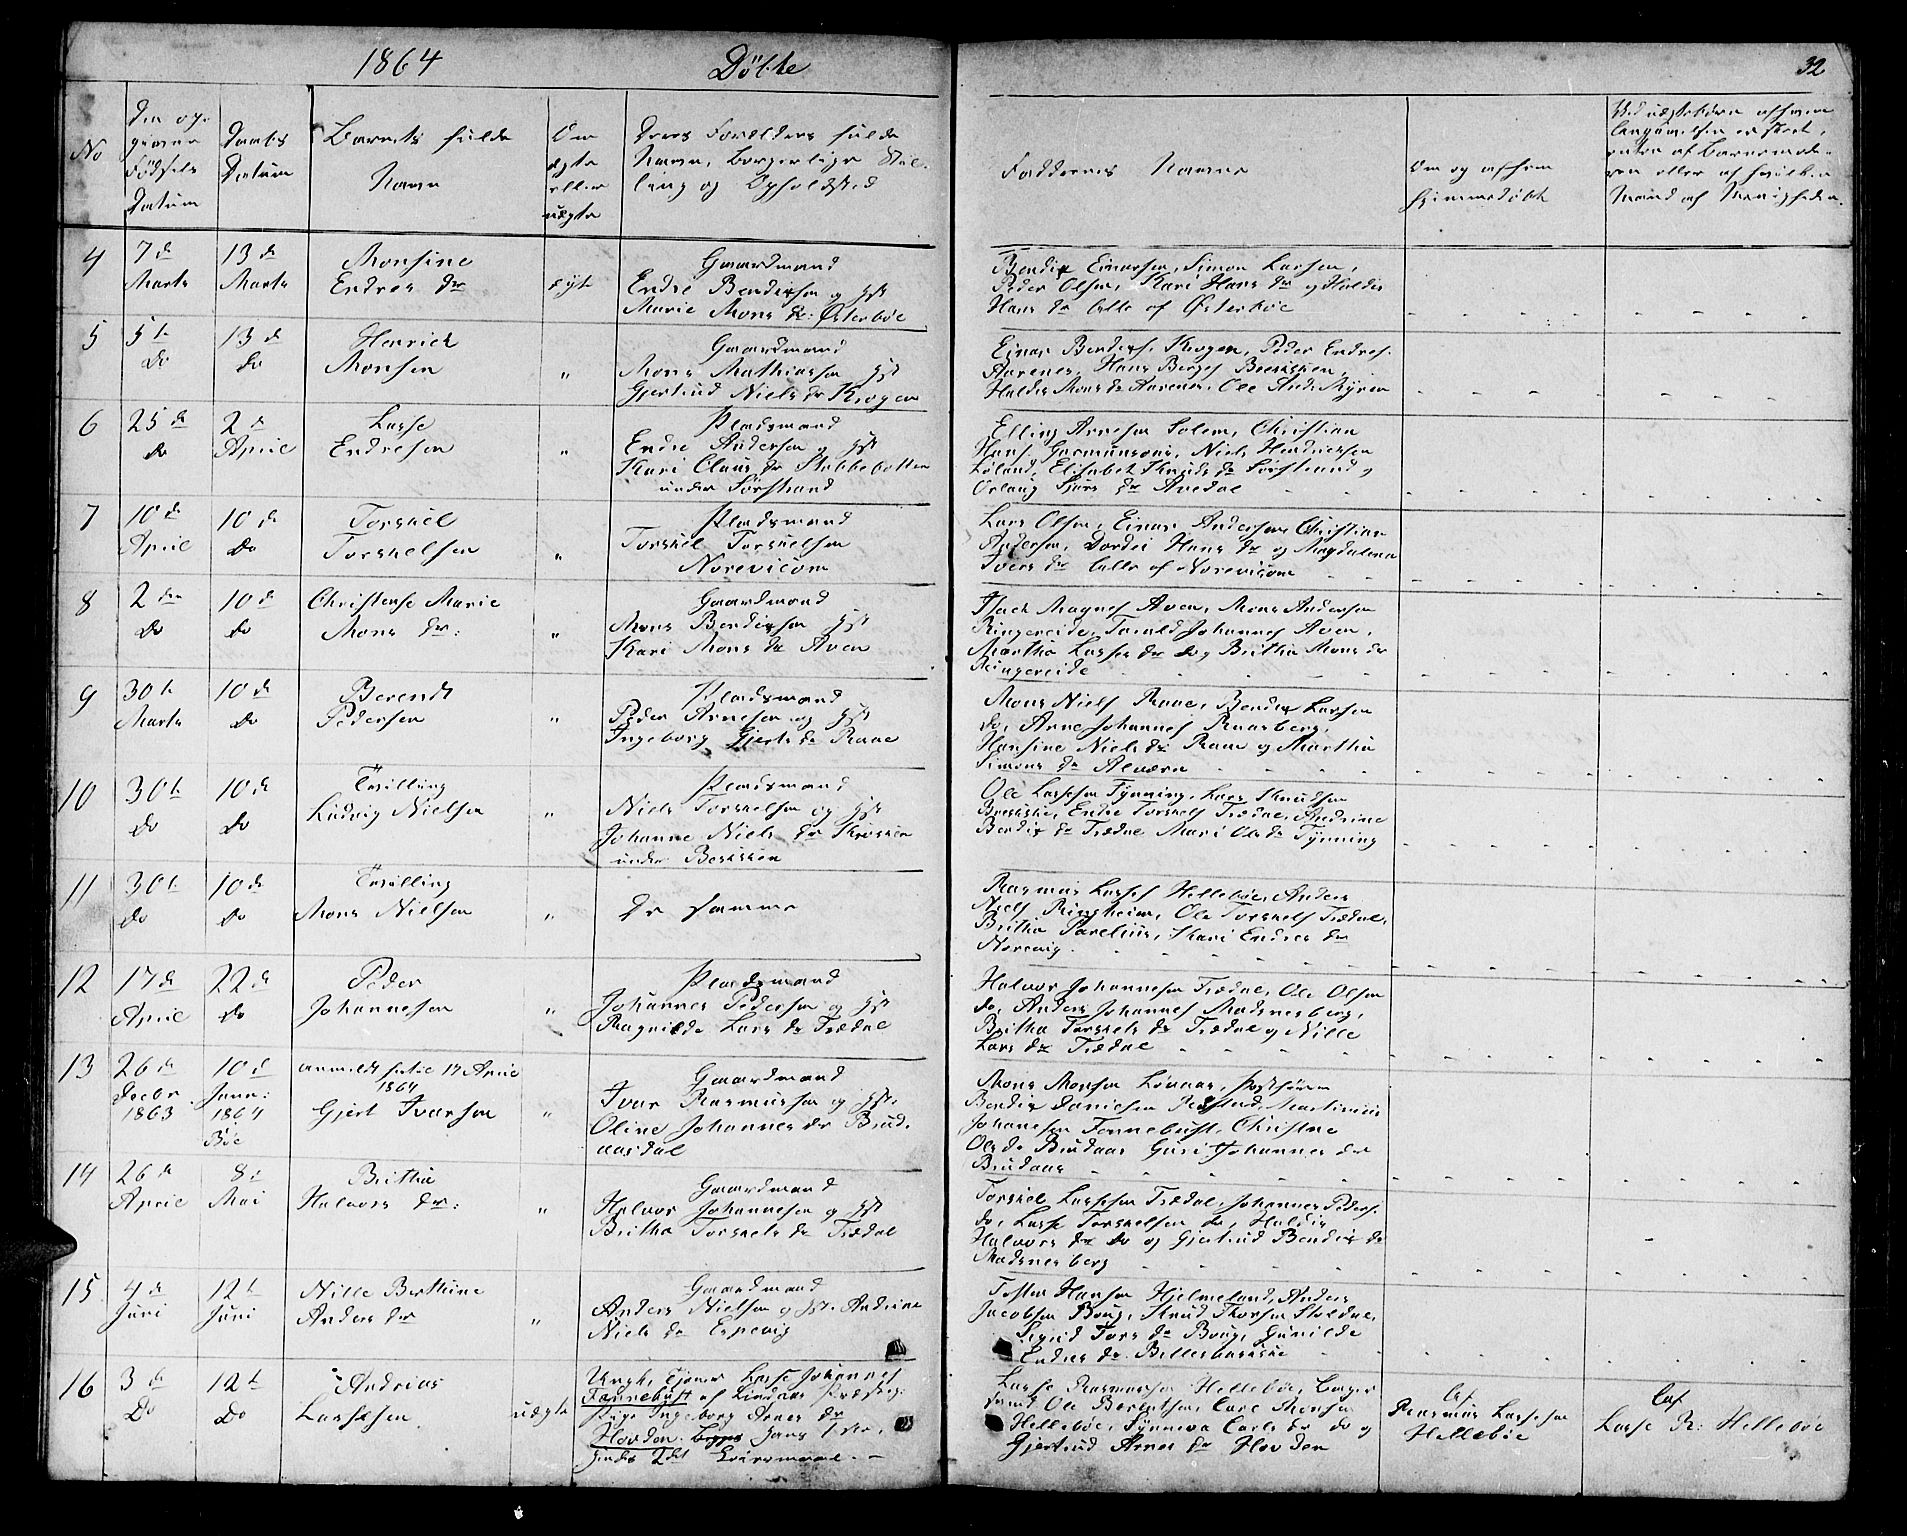 1864 Döbte
32
No
Den op-
givne
Födsels
Datum
Daabs
Datum
Barnets fulde
Navn
Om
ægte
eller
uægte
Deres Forældres fulde
Navn, borgerlige Stil-
ling og Opholdsted
Faddernes Navne
Om og af hvem
hjemmedöbt
4
7de
Marts
13de
Marts
Monsine
Endres dr
Ægte
Gaardmand
Endre Bendixsen og Hst
Marie Mons dr Østerböe
Bendix Einersen, Simon Larsen,
Peder Olsen, Kari Hans dr og Haldis
Hans dr alle af Østerböe
5
5te
Do
13de
Do
Henrick
Monsen
"
Gaardmand
Mons Mathiassen Hst
Gjertrud Niels dr Krogen
Einar Benders. Krogen, Peder Endres.
Aarenes, Hans Børges Brekken,
Haldis Mons dr Aarenes, Ole And. Myren
6
25de
Do
2de
April
Lasse
Endresen
"
Pladsmand
Endre Andersen og Hst
Kari Claus dr Stubbebotten
under Sörstrand
Elling Arnesen Solem, Christian
Hans. Niels Hendricksen
Löland, Elisabet Knuds dr Sörstrand og
Orlaug Sjurs dr Avedal
7
10de
April
10de
Do
Torskel
Torskelsen
"
Pladsmand
Torskel Torskelsen
Norevigom
Lars Olsen, Einar Andersen, Christian
Andersen, Dordei Hans dr og Magdalena
Ivers dr alle af Norevigom
8
2den
Do
10de
Do
Christense Marie
Mons dr:
"
Gaardmand
Mons Bendixsen Hst
Kari Mons dr Aven
Isach Magnes. Aven, Mons Andersen
Ringereide, Torvald Johannes. Aven,
Martha Lasses dr do og Britha Mons dr
Ringereide
9
30te
Marts
10de
Do
Berendt
Pedersen
"
Pladsmand
Peder Arnesen og Hst
Ingeborg Gjerts dr Raae
Mons Niels. Raae, Bendix Larsen
do, Arne Johannes. Raasberg,
Hansine Niels dr Raae og Martha
Simons dr Alværn
10
30te
Do
10de
Do
Tvilling
Ludvig Nielsen
"
Pladsmand
Niels Torskelsen og Hst
Johanne Niels dr
under Brekken
Ole Lassesen Tynning, Lars Knudsen
Brekke, Endre Torskels. Trædal, Andrine
Bendix dr Trædal Mari Ols dr Tynning
11
30te
Do
10de
Do
Tvilling
Mons Nielsen
"
De samme
Rasmus Lasses. Helleböe, Anders
Niels. Ringheim, Ole Torskels. Trædal,
Britha Parelius, Kari Endres dr
Norevig
12
17de
April
22de
Do
Peder
Johannesen
"
Pladsmand
Johannes Pedersen og Hst
Ragnilde Lars dr Trædal
Halvor Johannesen Trædal, Ole Olsen
do, Anders Johannes. Madsnesberg,
Britha Torskels dr Trædal og Nille
Lars dr Trædal
13
26de
Decbr.
1863
10de
Janu:
1864
Böe
anmeldt 17 April
1864
Gjert Ivarsen
"
Gaardmand
Ivar Rasmussen og Hst.
Oline Johannes dr Brud-
aasdal
Mons Monsen
Bendix Danielsen Martinius
Johannesen Fannebust, Christne
Ols dr Brudaas Guri Johannes dr
Brudaas
14
26de
April
8de
Mai
Britha
Halvors dr:
"
Gaardmand
Halvor Johannesen og Hst
Britha Torskels dr Trædal
Torskel Lassesen Trædal, Johannes Peders.
do, Lasse Torskelsen do, Haldis
Halvors dr do og Gjertrud Bendix dr
Madsnesberg
15
4de
Juni
12te
Juni
Nille Berthine
Anders dr
"
Gaardmand
Anders Nielsen og Hst. Andrine
Niels dr Espevig
Tosten Hansen Hjelmeland, Anders
Jacobsen Boug, Knud Thorsen Stoldal,
Sigrid Tors dr Boug, Gunilde
Endres dr
16
3de
Do
12te
Do
Andreas
Lassesen
uægte
Ungk. Tjener Lasse Johannes.
Fannebust af Lindaas Præstegj.
Pige Ingeborg Arnes dr
Hovden. hans 1ste,
hendes 2det Leiermaal.
Lasse Rasmussen Helleböe,
Ole Berentsen, Carl Monsen
Helleböe, Synneva Carls dr do og
Gjertrud Arnes dr Hovden
af
Rasmus Lassesen
Helleböe
af
Lasse R: Helleböe